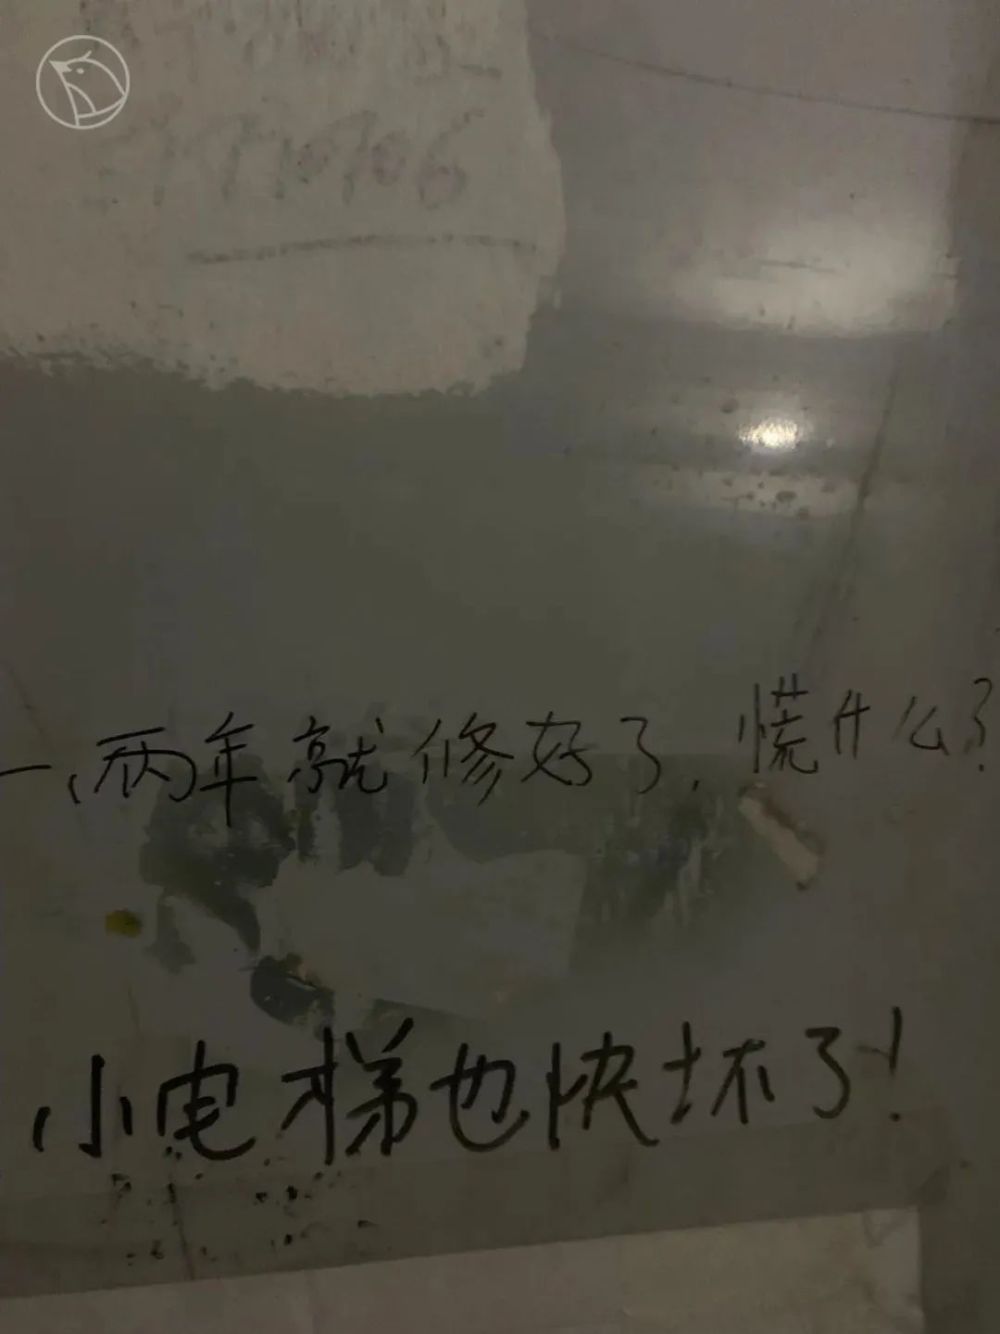 一、两年就修好了，慌什么？
小电梯也快坏了！